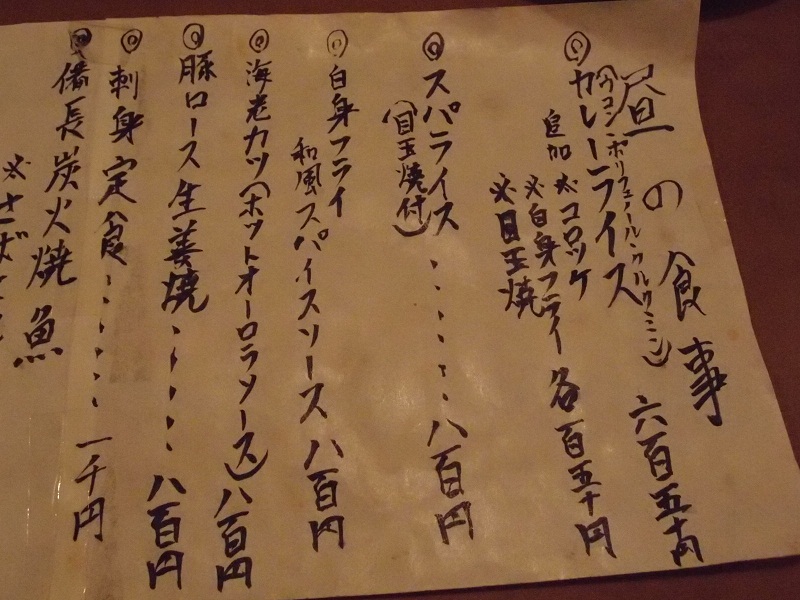 昼の食事
(ウコン・ポリフェノール・クルクミン)
◎カレーライス 六百五十円
追加 ※コロッケ
※白身フライ 各百五十円
※目玉焼
◎スパライス・・・・・・八百円
(目玉焼付)
◎白身フライ
和風スパイスソース 八百円
◎海老カツ(ホットオーロラソース)八百円
◎豚ロース生姜焼・・・・・八百円
◎刺身定食・・・・・・一千円
◎備長炭火焼魚